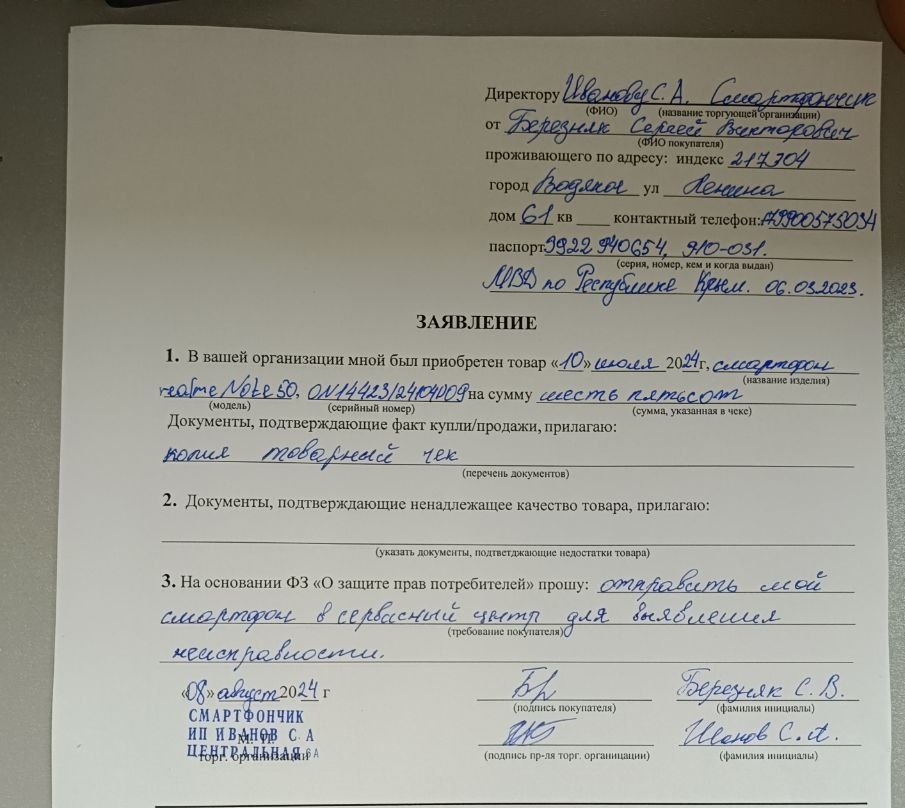 Директору Иванову С. А. Смартфончик
(ФИО) (название торгующей организации)
от Березняк Сергей Викторович
(ФИО покупателя)
проживающего по адресу: индекс 217304
город Водяное ул Ленина
дом 61 кв ____ контактный телефон: +79900575034
паспорт 9922 940654, 910-031.
(серия, номер, кем и когда выдан)
МВД по Республике Крым. 06.03.2023.
ЗАЯВЛЕНИЕ
1. В вашей организации мной был приобретен товар «10» июля 2024г, смартфон
(название изделия)
realme Note 50, 0N14423/24104009 на сумму шесть пятьсот
(модель) (серийный номер) (сумма, указанная в чеке)
Документы, подтверждающие факт купли/продажи, прилагаю:
копия товарный чек
(перечень документов)
2. Документы, подтверждающие ненадлежащее качество товара, прилагаю:
(указать документы, подтветджающие недостатки товара)
3. На основании ФЗ «О защите прав потребителей» прошу: отправить мой
смартфон в сервасный центр для выявления
(требование покупателя)
неисправности.
«08» август 2024 г
(подпись покупателя) Березняк С. В.
(фамилия инициалы)
СМАРТФОНЧИК
ИП ИВАНОВ С. А
М. П.
ЦЕНТРАЛЬНАЯ 6А
торг. организации
(подпись пр-ля торг. органицации) С. А.
(фамилия инициалы)